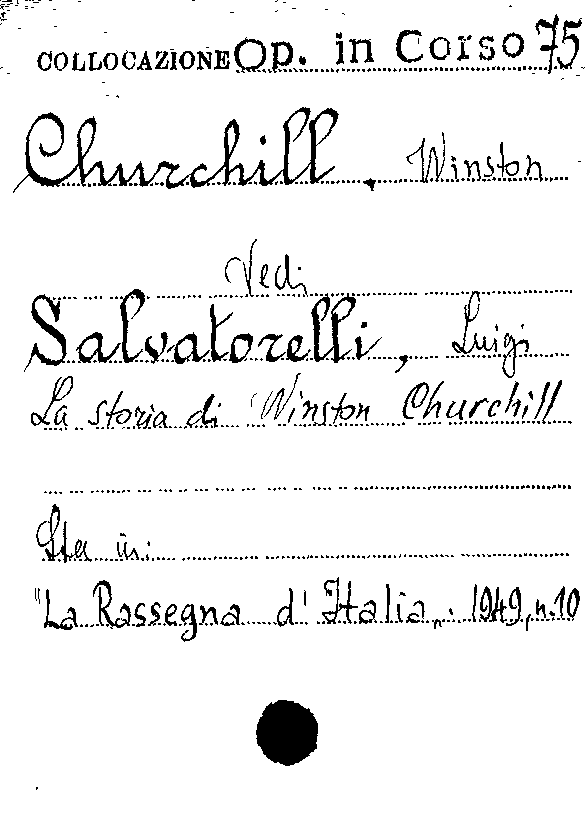 COLLOCAZIONE Op. in Corso 75
Churchill, Winston
Vedi
Salvatorelli, Luigi
La storia di Winston Churchill
Sta in:
"La Rassegna d'Italia„. 1949, n.10